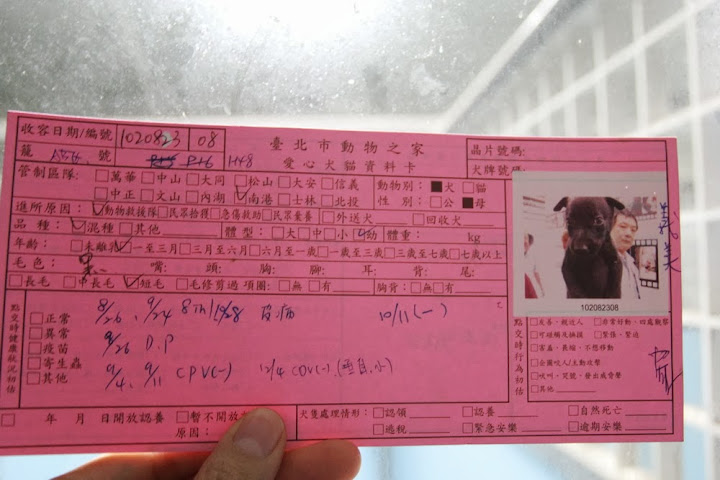 收容日期/編號 1020823 08
臺北市動物之家
愛心犬貓資料卡
晶片號碼:
犬牌號碼:
籠 號 H48
管制區隊: □萬華 □中山 □大同 □松山 □大安 □信義
□中正 □文山 □內湖 ☑南港 □士林 □北投
動物別: ■犬 □貓
性別: □公 ■母
進所原因: ☑動物救援隊 □民眾拾獲 □急傷救助 □民眾棄養 □外送犬 □回收犬
品種: ☑混種 □其他 體型: □大 □中 □小 ☑幼 體重: kg
年齡: □未離乳 ☑一至三月 □三月至六月 □六月至一歲 □一歲至三歲 □三歲至七歲 □七歲以上
毛色: 黑 嘴: 頭: 胸: 腳: 耳: 背: 尾:
□長毛 □中長毛 ☑短毛 □毛修剪過 項圈: □無 □有 胸背: □無 □有
102082308
點交時健康狀況初估
□正常 8/26、9/24 8th 皮病 10/11(-)
□異常
□疫苗 9/26 D.P
□寄生蟲
□其他 9/4、9/11 CPV(-) 12/4 CDV(-)
點交時行為初估
□友善、親近人 □非常好動、四處觀察
□可碰觸及撫摸 □緊張、緊迫
□害羞、畏縮、不想移動
□企圖咬人/主動攻擊
□吠叫、哭號、發出威脅聲
□其他
□ 年 月 日開放認養 □暫不開放
原因:
犬隻處理情形: □認領 □認養 □自然死亡
□逃脫 □緊急安樂 □逾期安樂